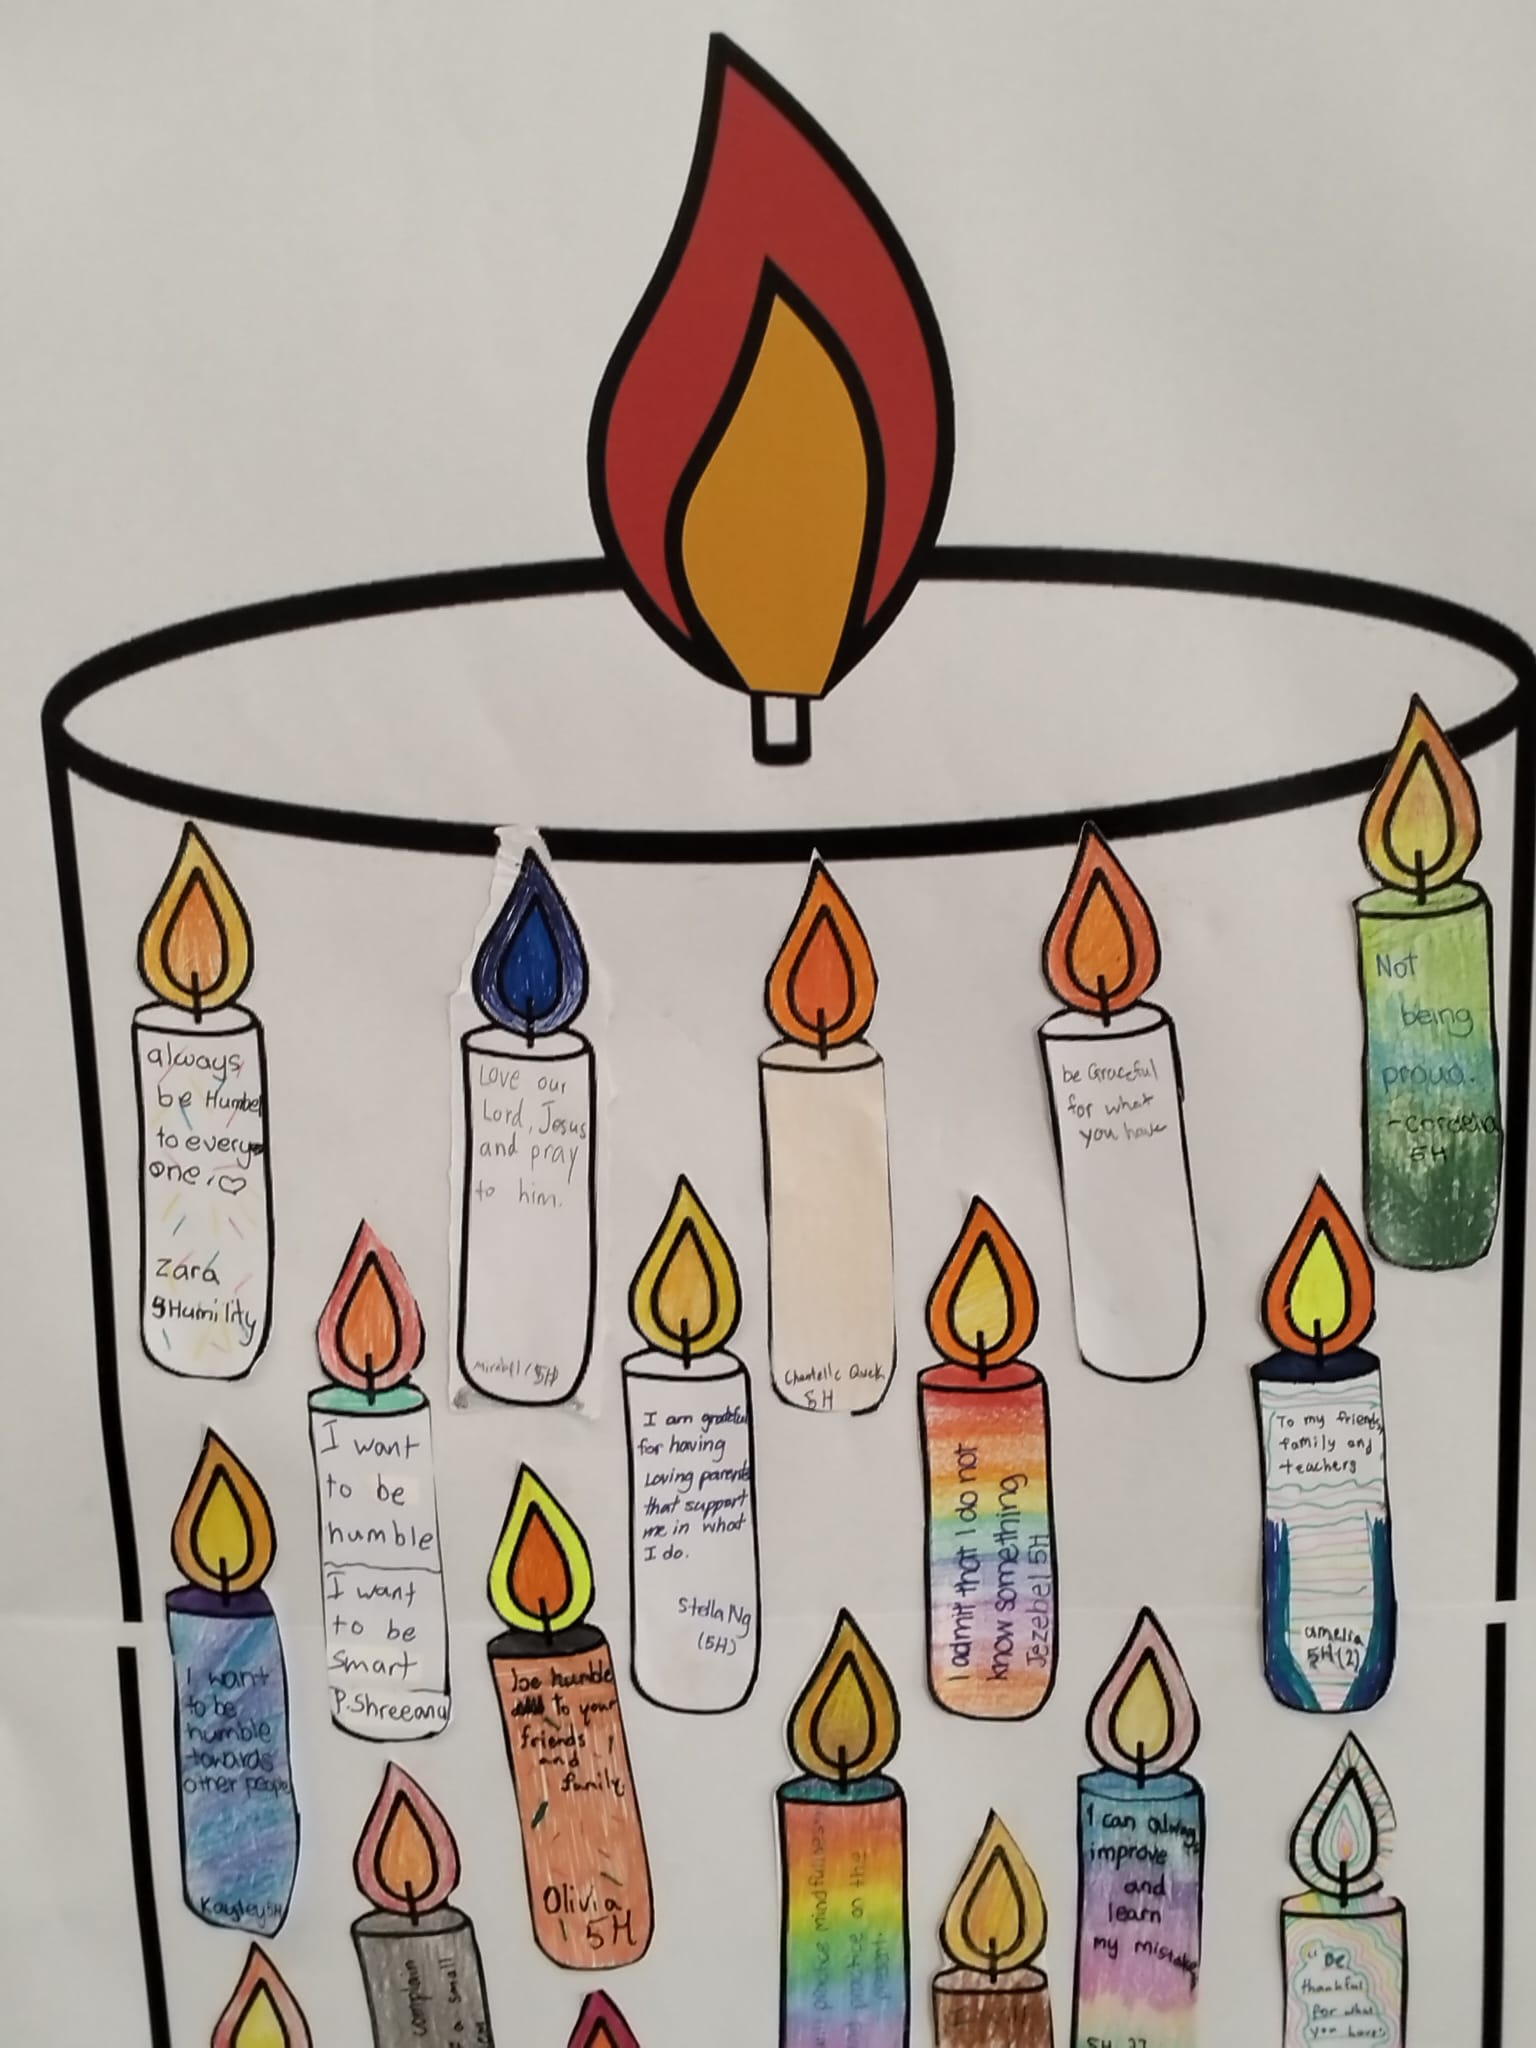 always
be Humbel
to every
one, ♡
Zara
5Humility
Love our
Lord, Jesus
and pray
to him.
Mirabel (5H)
Chantelle Quek
5H
be Graceful
for what
you have
Not
being
proud.
-Cordelia
5H
I want
to be
humble
I want
to be
smart
P.Shreeana
I am grateful
for having
Loving parents
that support
me in what
I do.
Stella Ng
(5H)
I admit that I do not
know something
Jezebel 5H
To my friends,
family and
teachers
amelia
5H (2)
I want
to be
humble
towards
other people
Kayley 5H
be humble
to your
friends
and
family.
Olivia
5H
practice mindfullness
practice on the
I can always
improve
and
learn
my mistakes
5H 27
"Be
thankful
for what
you have"
complain
a small